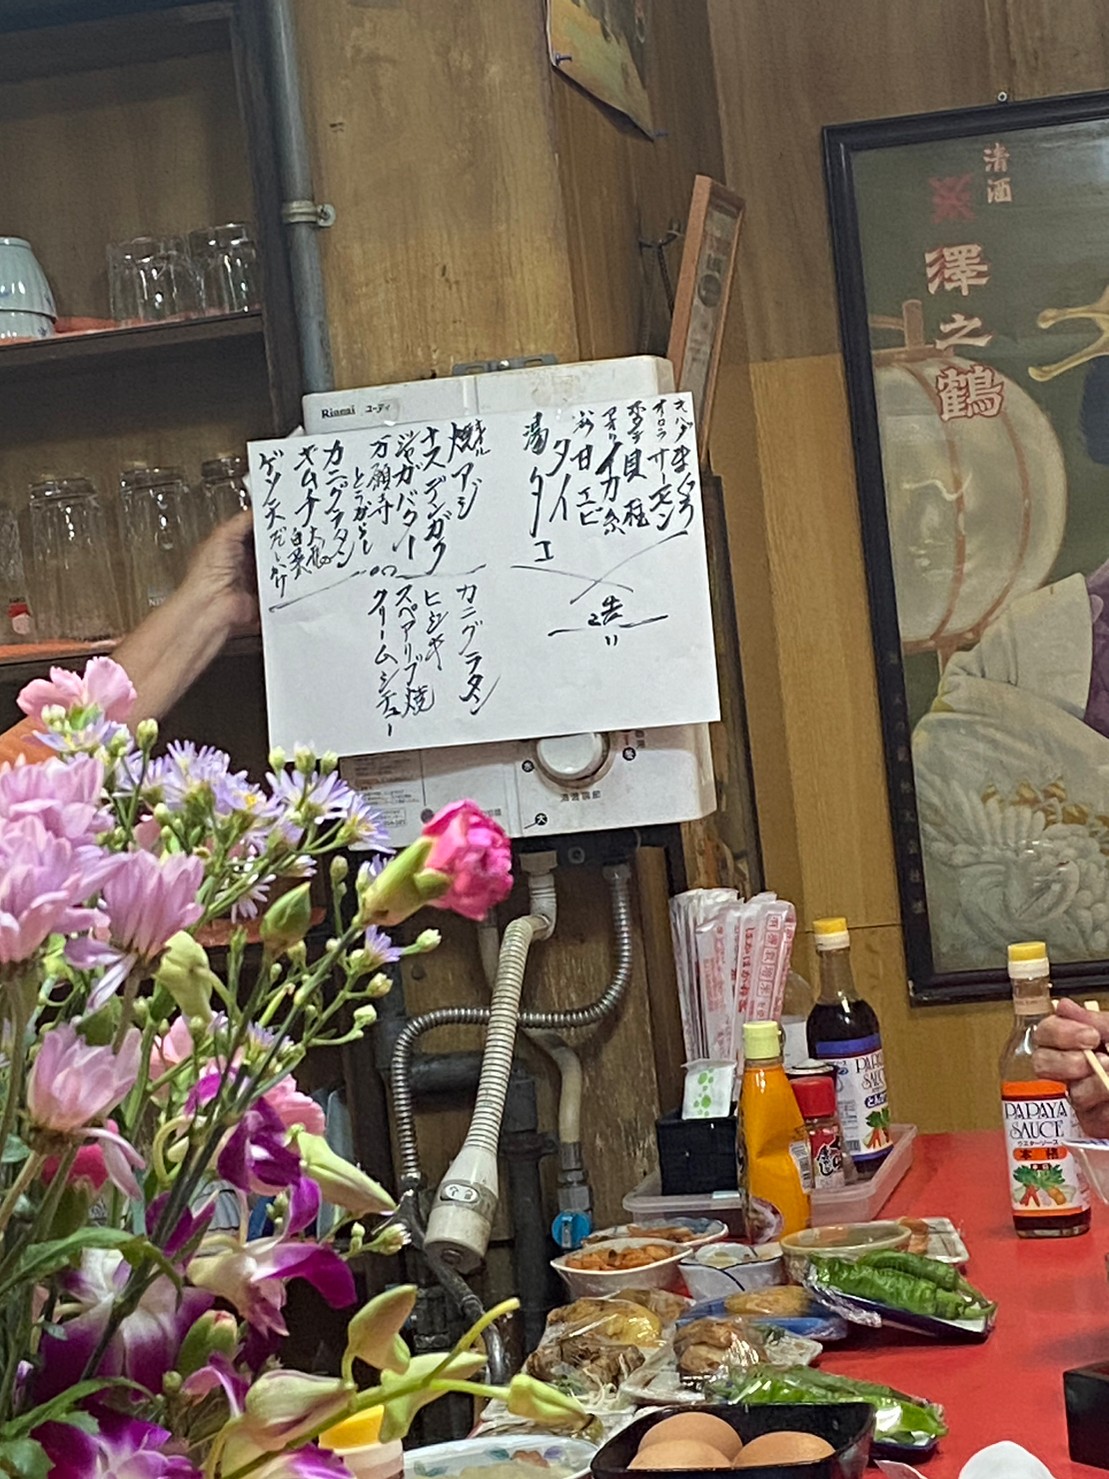 清酒
澤之鶴
Rinnai ユーティ
キハダ まぐろ
オーロラ サーモン
ホタテ 貝柱
アオリ イカ 糸
甘エビ
タイ
湯タコ
造り
焼アジ
ナスデンガク
ジャガバター
万願寺とうがらし
カニグラタン
キムチ 大根 白菜
ゲソ天 だしかけ
カニグラタン
ヒジキ
スペアリブ焼
クリームシチュー
大
PAPAYA
SAUCE
とんかつ
PAPAYA
SAUCE
ウスターソース
本格